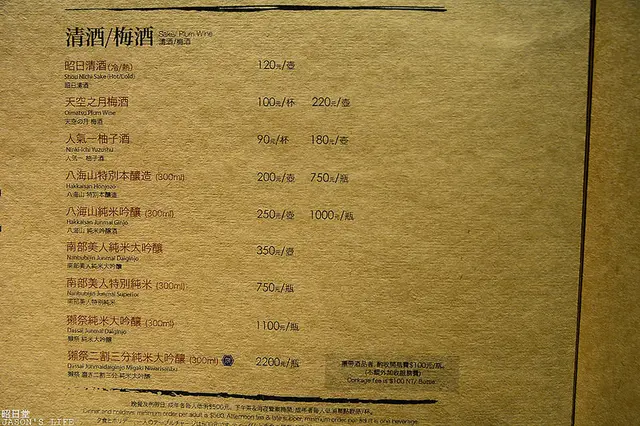 清酒/梅酒 Sake/ Plum Wine
清酒/梅酒
昭日清酒(冷/熱) 120元/壺
Shou Nichi Sake (Hot/Cold)
昭日清酒
天空之月梅酒 100元/杯 220元/壺
Oimatsu Plum Wine
天空の月 梅酒
人氣一柚子酒 90元/杯 180元/壺
Ninki-Ichi Yuzushu
人気一 柚子酒
八海山特別本釀造 (300ml) 200元/壺 750元/瓶
Hakkaisan Honjozo
八海山 特別本醸造
八海山純米吟釀 (300ml) 250元/壺 1000元/瓶
Hakkaisan Junmai Ginjo
八海山 純米吟醸酒
南部美人純米大吟釀 350元/壺
Nanbubijin Junmai Daiginjo
南部美人純米大吟醸
南部美人特別純米 (300ml) 750元/瓶
Nanbubijin Junmai Superior
南部美人特別純米
獺祭純米大吟釀 (300ml) 1100元/瓶
Dassai Junmai Daiginjo
獺祭 純米大吟醸
獺祭二割三分純米大吟釀 (300ml) 2200元/瓶
Dassai Junmaidaiginjo Migaki Niwarisanbu
獺祭 磨き二割三分 純米大吟醸
攜帶酒品者, 酌收開瓶費$100元/瓶,
(不額外加收服務費)
Corkage fee is $100 NT/ Bottle
Dinner and holidays minimum order per adult is $500. Afternoon tea & late supper, minimum order per adult is one beverage.
昭日堂
JASON'S LIFE